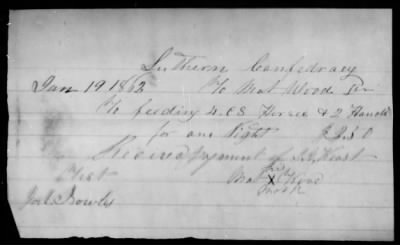 Suthern Confedracy
Jan 19 1862 To Mat Wood Dr
To feeding 4 CS Horses & 2 Hands
for one Night
Received payment of
Test Mat Wood
his X mark
Joel Bowls